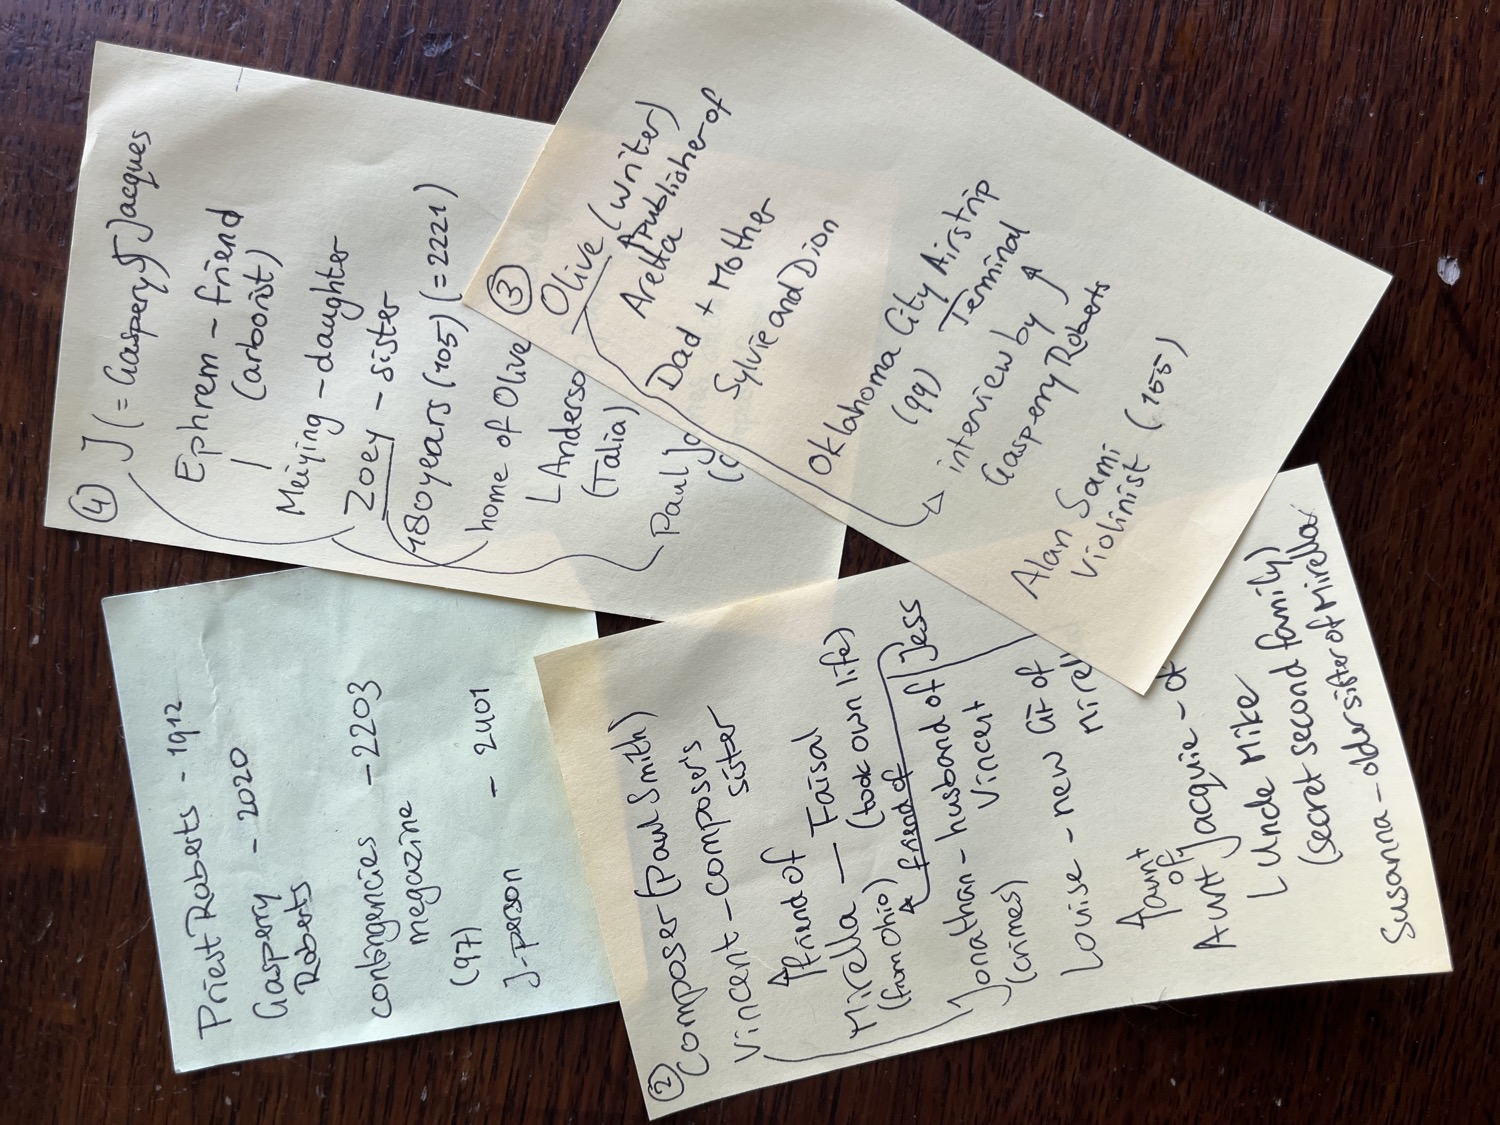 ④ J (= Gaspery J Jacques
Ephrem - friend
(arborist)
Meiying - daughter
Zoey - sister
180 years (105) (= 2221)
home of Olive
L Anderson
(Talia)
Paul
③ Olive (writer)
Aretta publisher of
Dad + Mother
Sylvie and Dion
Oklahoma City Airstrip
(99) Terminal
interview by
Gasperry Roberts
Alan Sami
Violinist (155)
Priest Roberts - 1912
Gasperry - 2020
Roberts
contingencies - 2203
megazine
(97)
J-person - 2401
② Composer (Paul Smith)
Vincent - composer's
sister
friend of
Mirella - Faisal
(from Ohio) (took own life)
friend of
Jonathan - husband of Jess
(crimes) Vincent
Louise - new GF of
aunt
of
Aunt Jacquie - of
L Uncle Mike
(secret second family)
Susanna - older sister of Mirella